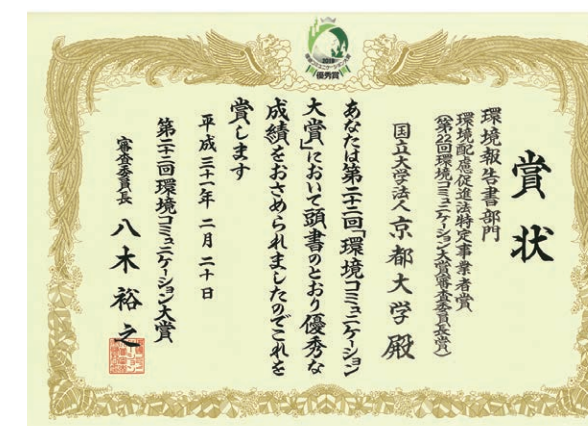 2019
優秀賞
賞状
環境報告書部門
環境配慮促進法特定事業者賞
(第22回環境コミュニケーション大賞審査委員長賞)
国立大学法人京都大学殿
あなたは第二十二回「環境コミュニケーション
大賞」において頭書のとおり優秀な
成績をおさめられましたのでこれを
賞します
平成三十一年 二月 二十日
第二十二回環境コミュニケーション大賞
審査委員長 八木裕之